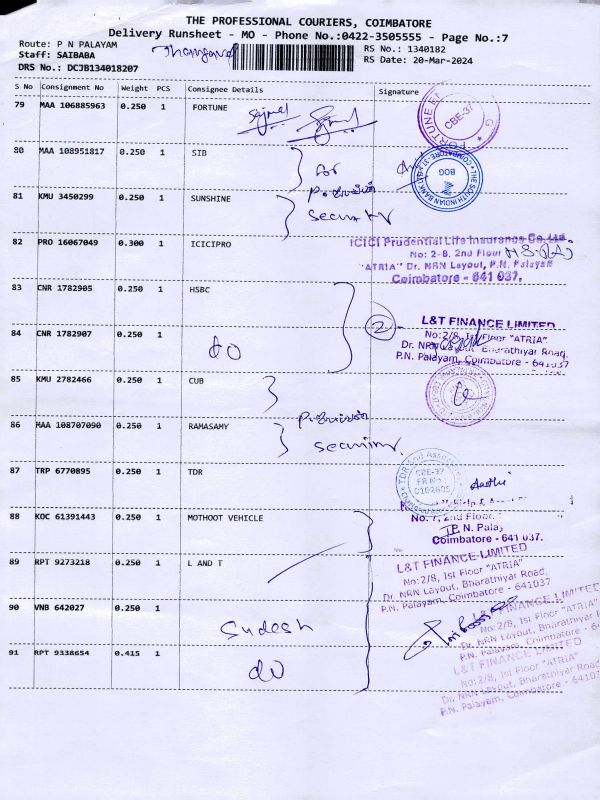 THE PROFESSIONAL COURIERS, COIMBATORE
Delivery Runsheet - MO - Phone No.:0422-3505555 - Page No.:7
Route: P N PALAYAM
RS No.: 1340182
Staff: SAIBABA
RS Date: 20-Mar-2024
DRS No.: DCJB134018207
S No Consignment No Weight PCS Consignee Details Signature
79 MAA 106885963 0.250 1 FORTUNE
CBE-37
80 MAA 108951817 0.250 1 SIB
for
THE SOUTH INDIAN BANK
BOG
81 KMU 3450299 0.250 1 SUNSHINE
82 PRO 16067049 0.300 1 ICICIPRO
ICICI Prudential Life Insurance Co. Ltd.
No: 2-8, 2nd Floor
"ATRIA" Dr. NRN Layout, P.N. Palayam
Coimbatore - 641 037.
83 CNR 1782905 0.250 1 HSBC
2
L&T FINANCE LIMITED
84 CNR 1782907 0.250 1
do
No:2/8, 1st Floor "ATRIA"
Dr. NRN Layout, Bharathiyar Road,
P.N. Palayam, Coimbatore - 641037
85 KMU 2782466 0.250 1 CUB
86 MAA 108707090 0.250 1 RAMASAMY
87 TRP 6770895 0.250 1 TDR
TDR And Associates
CBE-37
FR No
88 KOC 61391443 0.250 1 MOTHOOT VEHICLE
No. 7, 2nd Floor,
P. N. Palay
Coimbatore - 641 037.
89 RPT 9273218 0.250 1 L AND T
L&T FINANCE LIMITED
No:2/8, 1st Floor "ATRIA"
Dr. NRN Layout, Bharathiyar Road,
P.N. Palayam, Coimbatore - 641037
90 VNB 642027 0.250 1
Sudesh
L&T FINANCE LIMITED
No:2/8, 1st Floor "ATRIA"
Dr. NRN Layout, Bharathiyar Road
P.N. Palayam, Coimbatore - 641037
91 RPT 9338654 0.415 1
do
L&T FINANCE LIMITED
No:2/8, 1st Floor "ATRIA"
Dr. NRN Layout, Bharathiyar Road
P.N. Palayam, Coimbatore - 641037